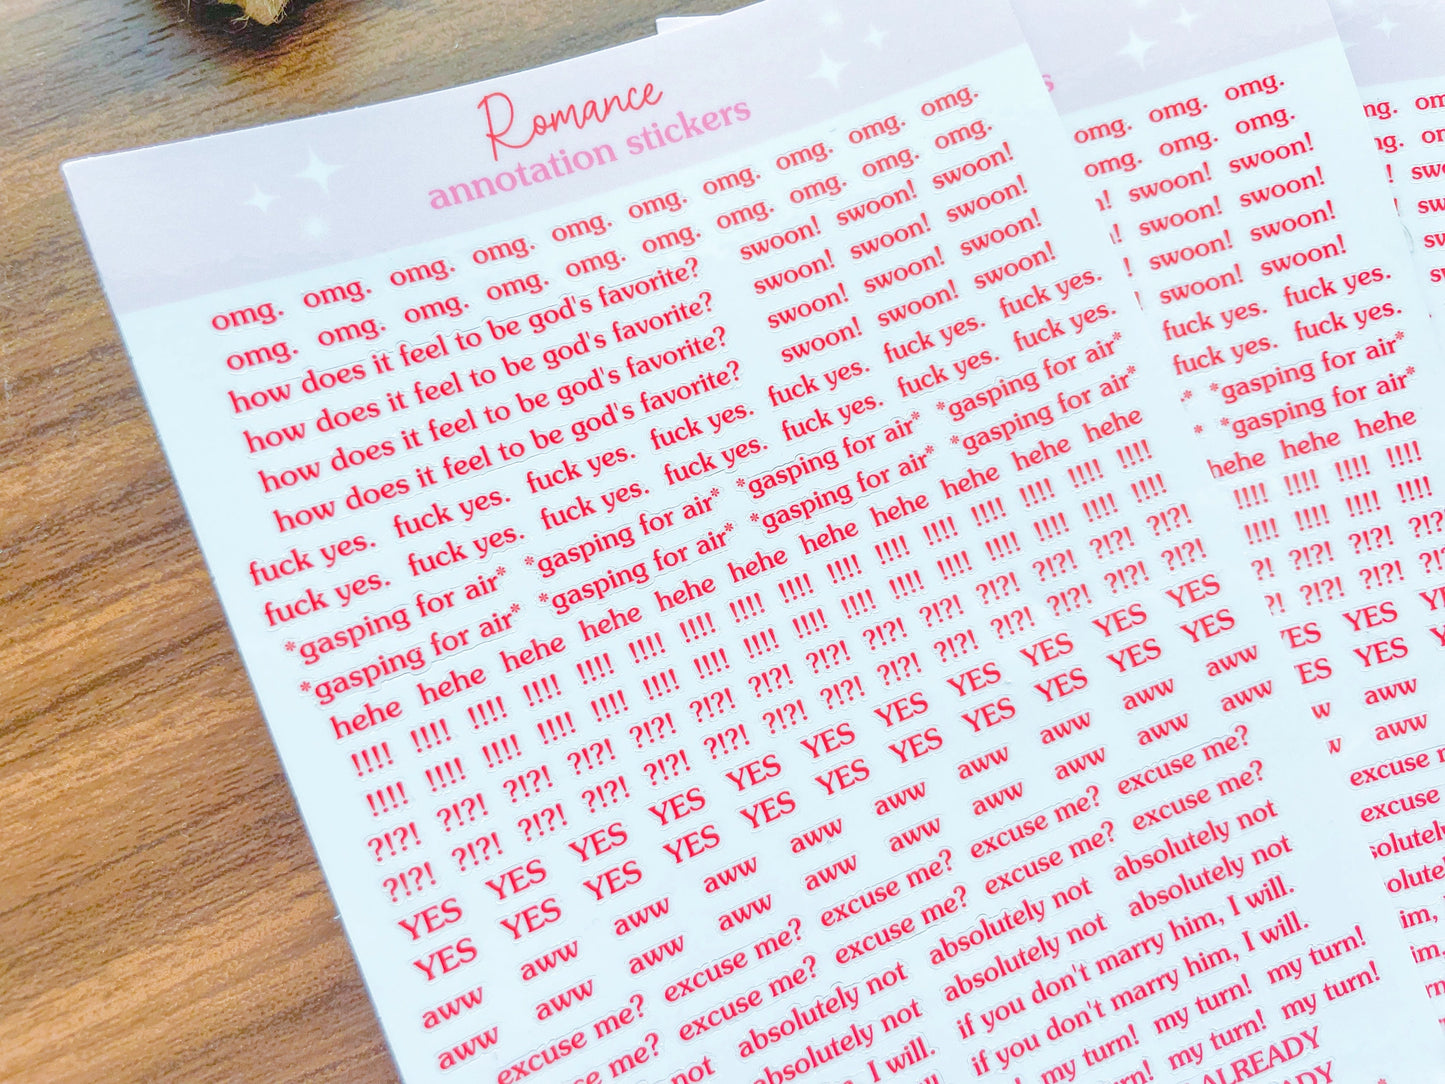 Romance
annotation stickers
omg. omg. omg. omg. omg. omg. omg. omg. omg. omg.
omg. omg. omg. omg. omg. omg. omg. omg. omg. omg.
how does it feel to be god's favorite? swoon! swoon! swoon!
how does it feel to be god's favorite? swoon! swoon! swoon!
how does it feel to be god's favorite? swoon! swoon! swoon!
how does it feel to be god's favorite? swoon! swoon! swoon!
fuck yes. fuck yes. fuck yes. fuck yes. fuck yes. fuck yes. fuck yes.
fuck yes. fuck yes. fuck yes. fuck yes. fuck yes. fuck yes. fuck yes.
*gasping for air* *gasping for air* *gasping for air* *gasping for air*
*gasping for air* *gasping for air* *gasping for air* *gasping for air*
hehe hehe hehe hehe hehe hehe hehe hehe hehe hehe hehe
!!!! !!!! !!!! !!!! !!!! !!!! !!!! !!!! !!!! !!!! !!!! !!!! !!!! !!!! !!!! !!!!
!!!! !!!! !!!! !!!! !!!! !!!! !!!! !!!! !!!! !!!! !!!! !!!! !!!! !!!! !!!! !!!!
?!?! ?!?! ?!?! ?!?! ?!?! ?!?! ?!?! ?!?! ?!?! ?!?! ?!?! ?!?! ?!?! ?!?!
?!?! ?!?! ?!?! ?!?! ?!?! ?!?! ?!?! ?!?! ?!?! ?!?! ?!?! ?!?! ?!?! ?!?!
YES YES YES YES YES YES YES YES YES YES YES
YES YES YES YES YES YES YES YES YES YES YES
aww aww aww aww aww aww aww aww aww aww
aww aww aww aww aww aww aww aww aww aww
excuse me? excuse me? excuse me? excuse me? excuse me?
me? excuse me? excuse me? excuse me? excuse me?
not absolutely not absolutely not absolutely not
absolutely not absolutely not absolutely not
I will. if you don't marry him, I will.
if you don't marry him, I will.
my turn! my turn! my turn!
turn! my turn! my turn!
ALREADY
omg. omg. omg.
omg. omg. omg.
swoon! swoon!
swoon! swoon!
swoon! swoon!
swoon! swoon!
fuck yes. fuck yes.
fuck yes. fuck yes.
*gasping for air*
*gasping for air*
hehe hehe hehe
!!!! !!!! !!!! !!!!
!!!! !!!! !!!! !!!!
?!?! ?!?! ?!?!
?!?! ?!?!
YES YES
YES YES
aww
aww
excuse
excuse